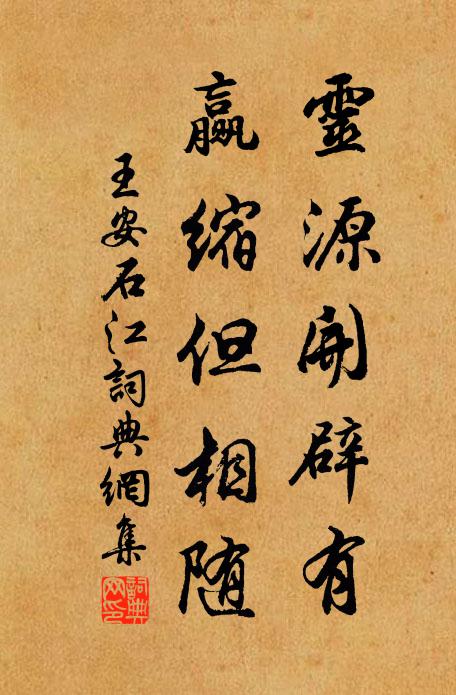 靈源開辟有
贏縮但相随
王安石江詞典網集
詞典